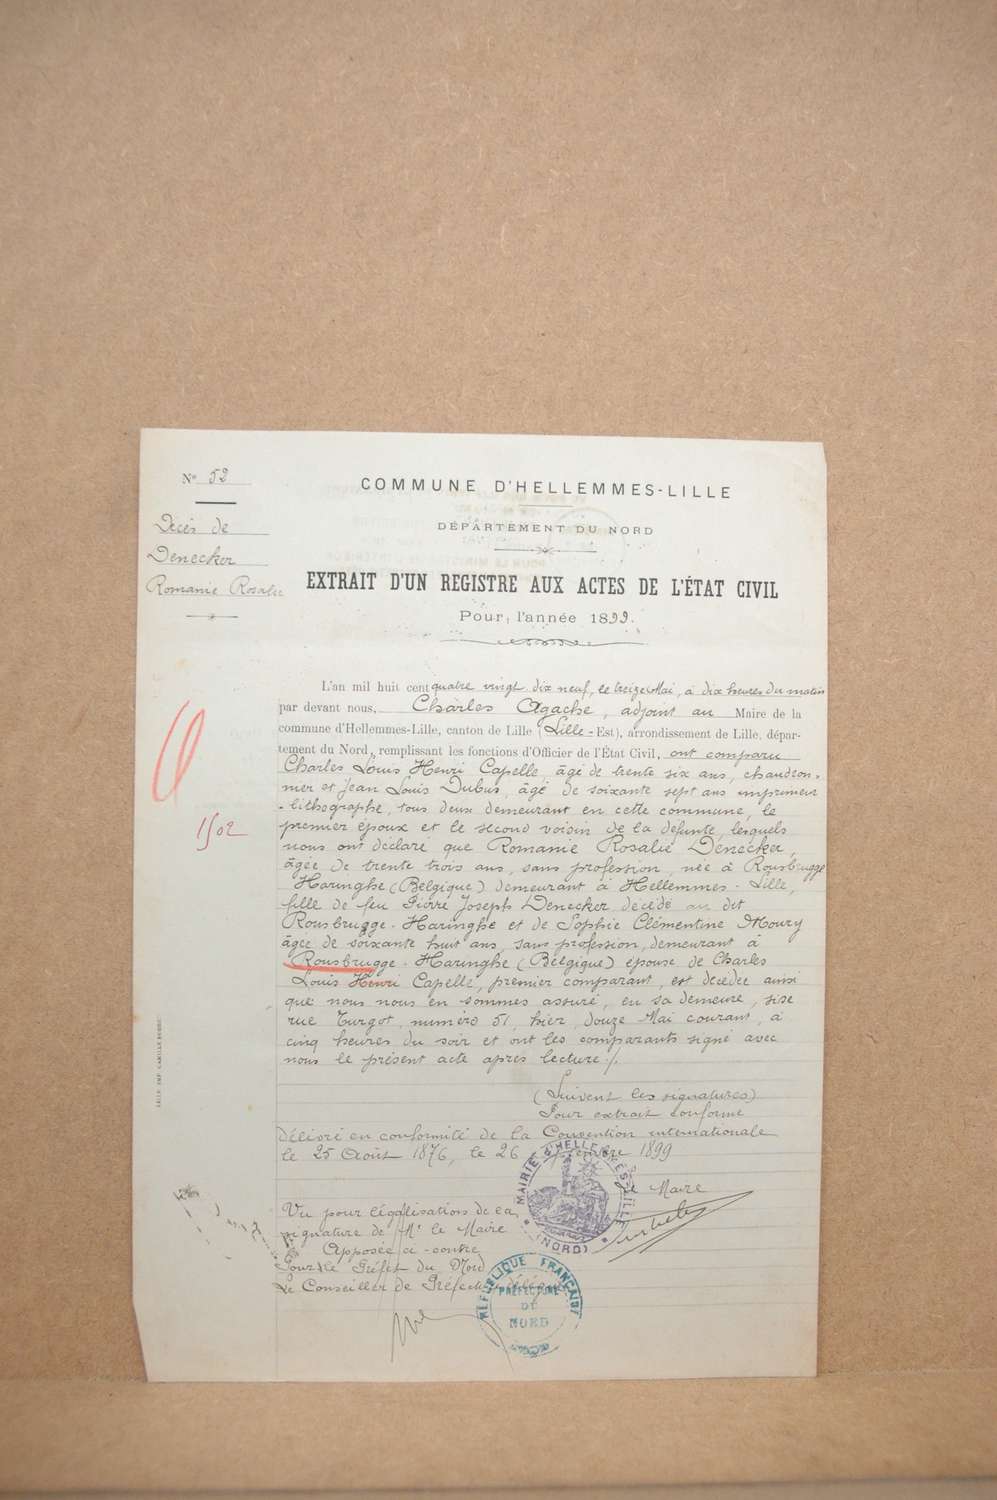 Nº 52
Décès de
Denecker
Romanie Rosalie
COMMUNE D'HELLEMMES-LILLE
DÉPARTEMENT DU NORD
EXTRAIT D'UN REGISTRE AUX ACTES DE L'ÉTAT CIVIL
Pour l'année 1899.
L'an mil huit cent quatre vingt dix neuf, le treize Mai, à dix heures du matin
par devant nous, Charles Agache, adjoint au Maire de la
commune d'Hellemmes-Lille, canton de Lille (Lille-Est), arrondissement de Lille, dépar-
tement du Nord, remplissant les fonctions d'Officier de l'État Civil, ont comparu
Charles Louis Henri Capelle, âgé de trente six ans, chaudron-
nier et Jean Louis Dubus, âgé de soixante sept ans imprimeur
-lithographe, tous deux demeurant en cette commune, le
premier époux et le second voisin de la défunte, lesquels
nous ont déclaré que Romanie Rosalie Denecker,
âgée de trente trois ans, sans profession, née à Rousbrugge
Haringhe (Belgique) demeurant à Hellemmes-Lille,
fille de feu Pierre Joseph Denecker décédé au dit
Rousbrugge-Haringhe et de Sophie Clémentine Moury
âgée de soixante huit ans, sans profession, demeurant à
Rousbrugge-Haringhe (Belgique) épouse de Charles
Louis Henri Capelle, premier comparant, est décédée ainsi
que nous nous en sommes assuré, en sa demeure, sise
rue Turgot, numéro 51, hier, douze Mai courant, à
cinq heures du soir et ont les comparants signé avec
nous le présent acte après lecture ./.
(Suivent les signatures)
Pour extrait conforme
Délivré en conformité de la Convention internationale
le 25 Août 1876, le 26 1899
Le Maire
Vu pour légalisation de la
signature de Mr le Maire
Apposée ci-contre
Pour le Préfet du Nord
Le Conseiller de Préfecture délégué
MAIRIE D'HELLEMMES-LILLE
(NORD)
RÉPUBLIQUE FRANÇAISE
PRÉFECTURE
DU
NORD
1502